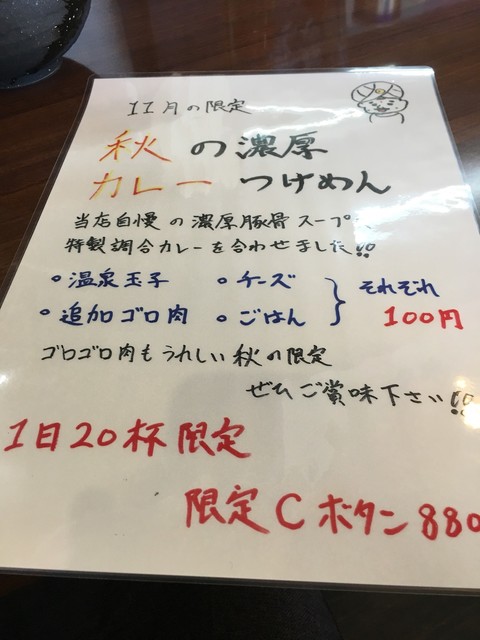 11月の限定
秋の濃厚
カレーつけめん
当店自慢の濃厚豚骨スープに
特製調合カレーを合わせました!!
・温泉玉子 ・チーズ
・追加ゴロ肉 ・ごはん
それぞれ
100円
ゴロゴロ肉もうれしい秋の限定
ぜひご賞味下さい!!
1日20杯限定
限定Cボタン880